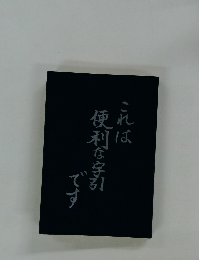 これは
便利な字引
です